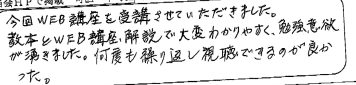 今回WEB講座を受講させていただきました。
教本とWEB講座、解説で大変わかりやすく、勉強意欲
が湧きました。何度も繰り返し視聴できるのが良か
った。